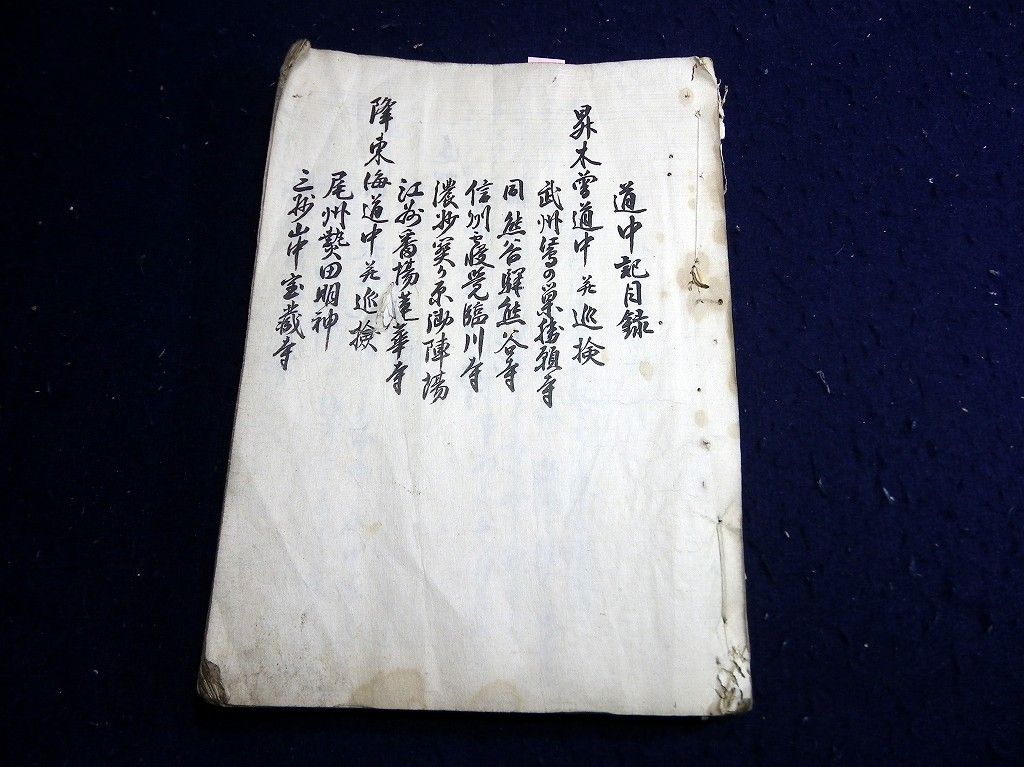 道中記目録
昇木曽道中并巡検
武州鴻の巣勝願寺
同熊谷駅熊谷寺
信州寝覚臨川寺
濃州関ヶ原御陣場
江州番場蓮華寺
降東海道中并巡檢
尾州熱田明神
三州山中宝蔵寺